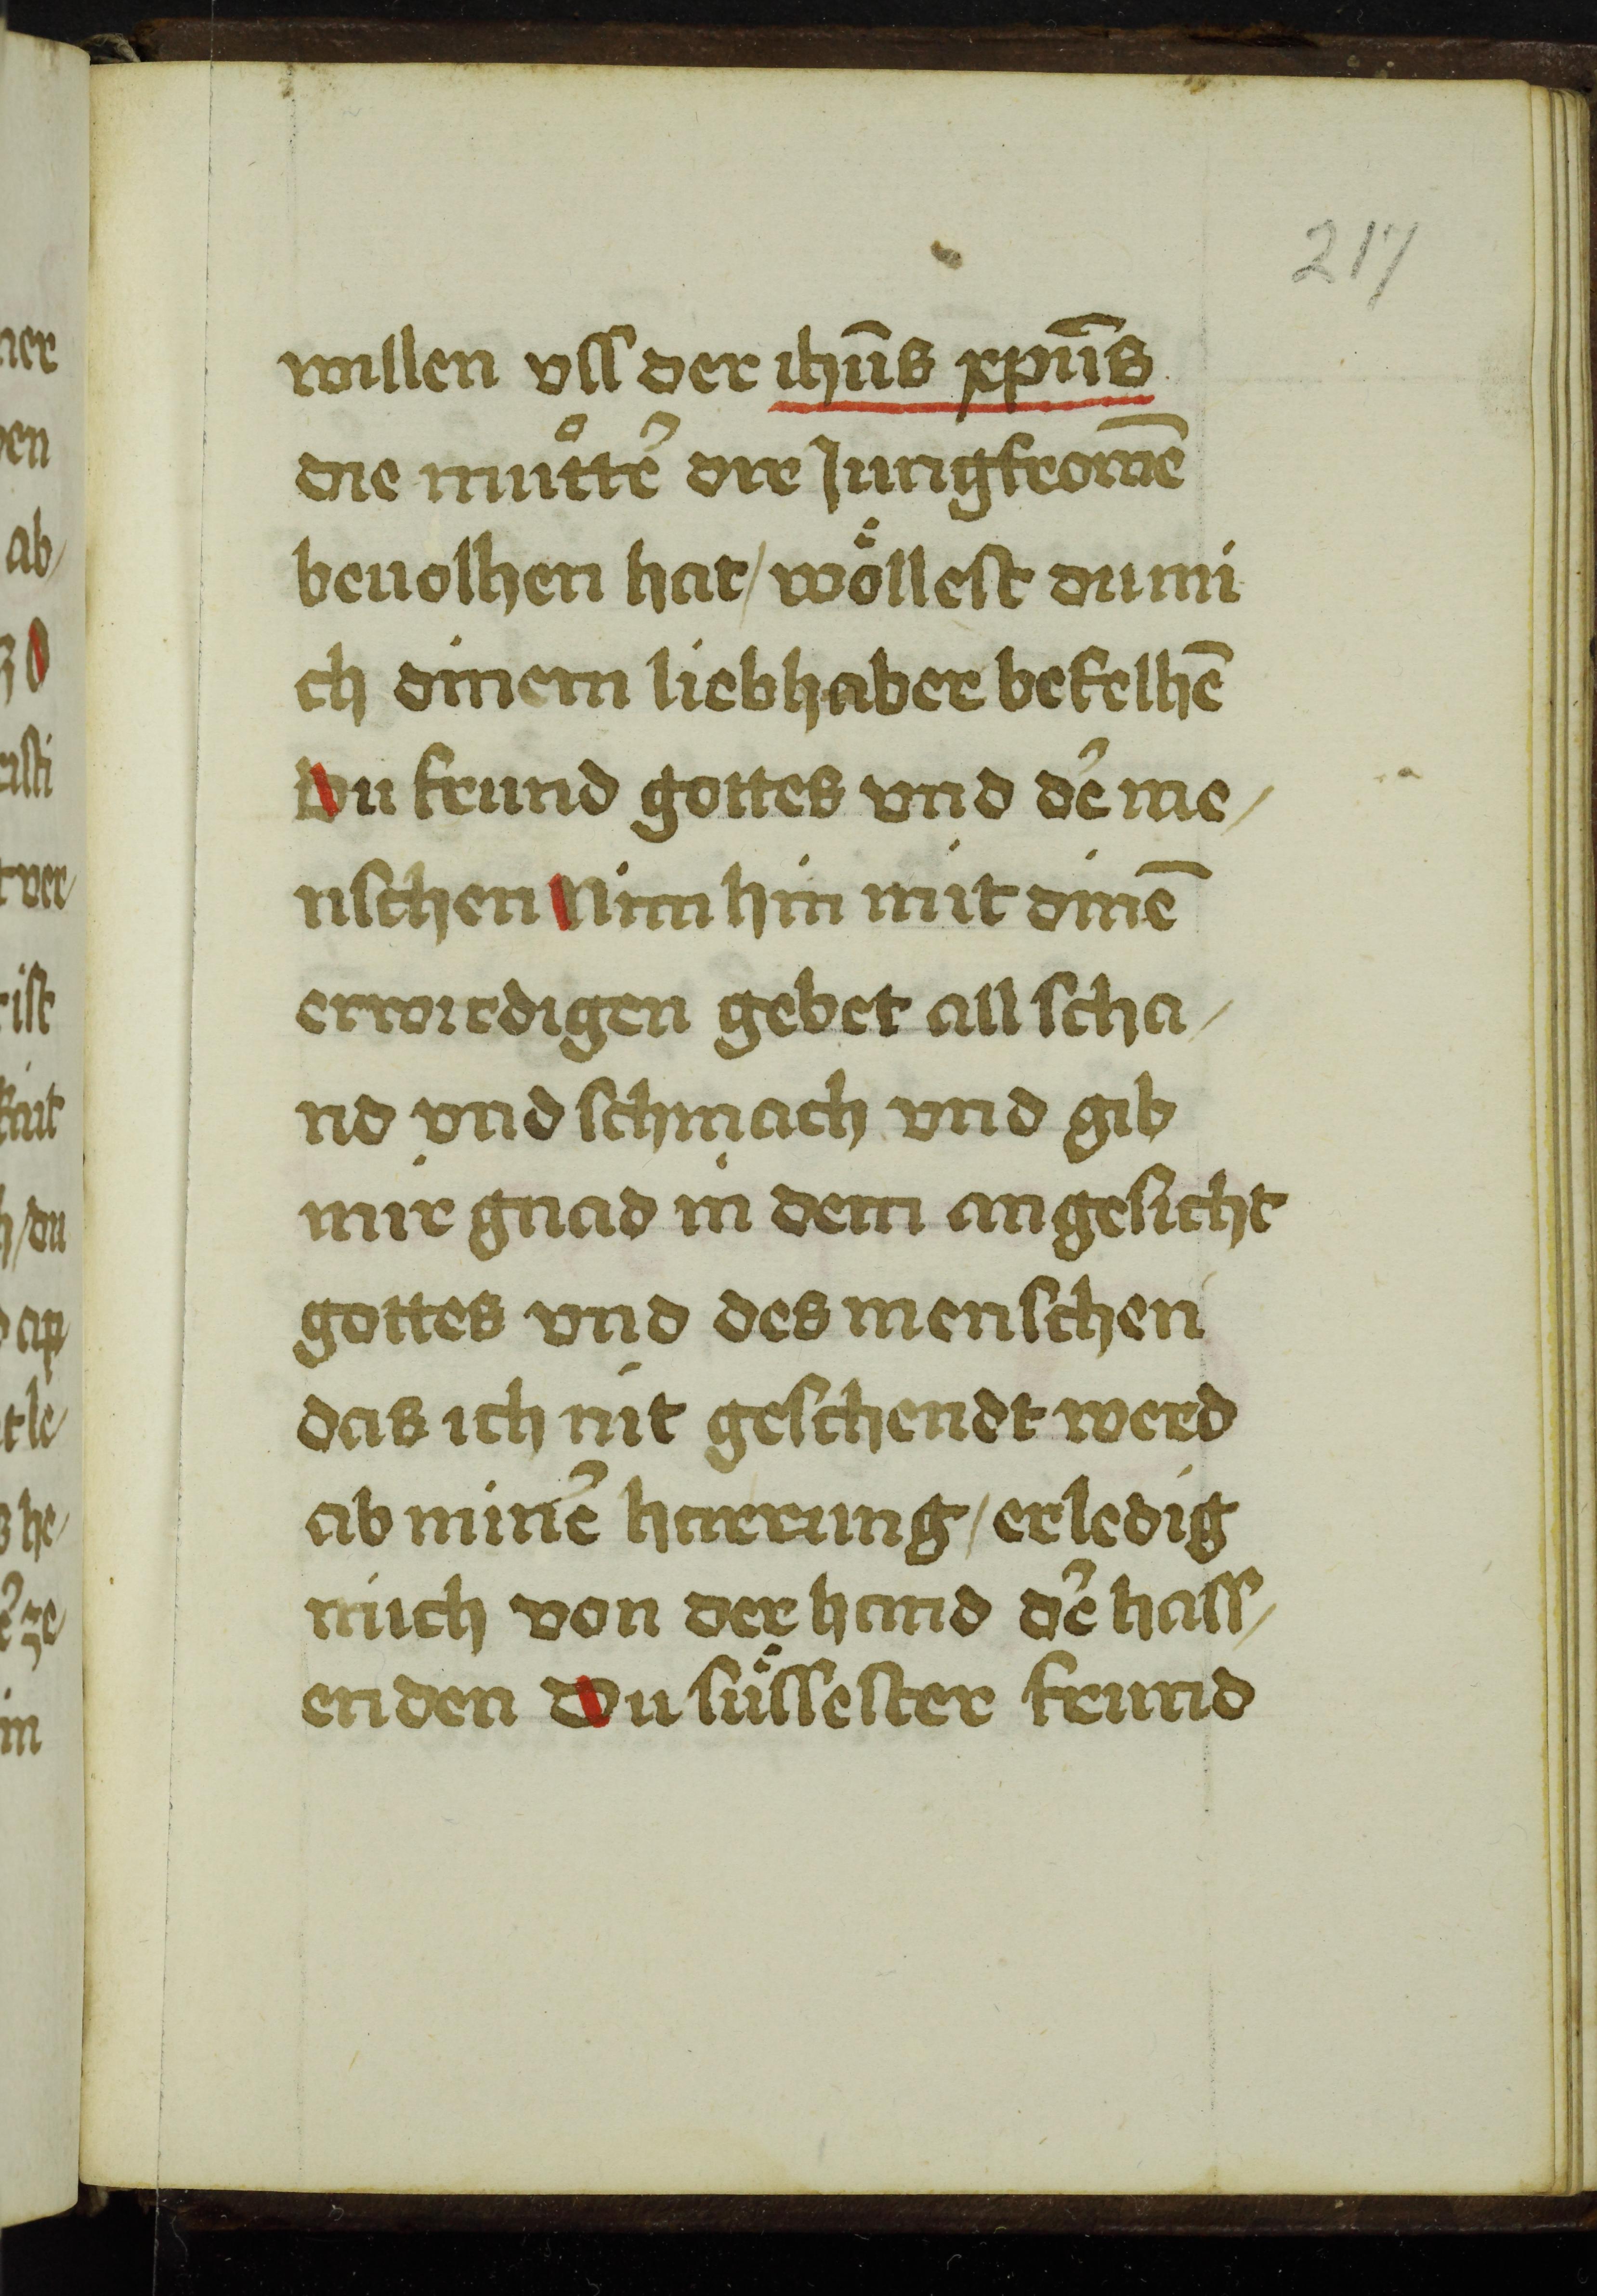 217
willen vſſ der ihūs xpūs
die muͦtt᷑e dir Jungfrowē̄
beuolhen hat / woͤlleſt du mi
ch dinem liebhaber befelhē
Du frund gottes vnd d᷑e me /
nſchen Nim hin mit dinē
erwirdigen gebet all ſcha /
nd vnd ſchmach vnd gib
mir gnad in dem angeſicht
gottes vnd des menſchen
das ich nit geſchendt werd
ab min᷑e harrung / erledig
mich von der hand d᷑e haſſ /
enden Du ſuͤſſeſter frund